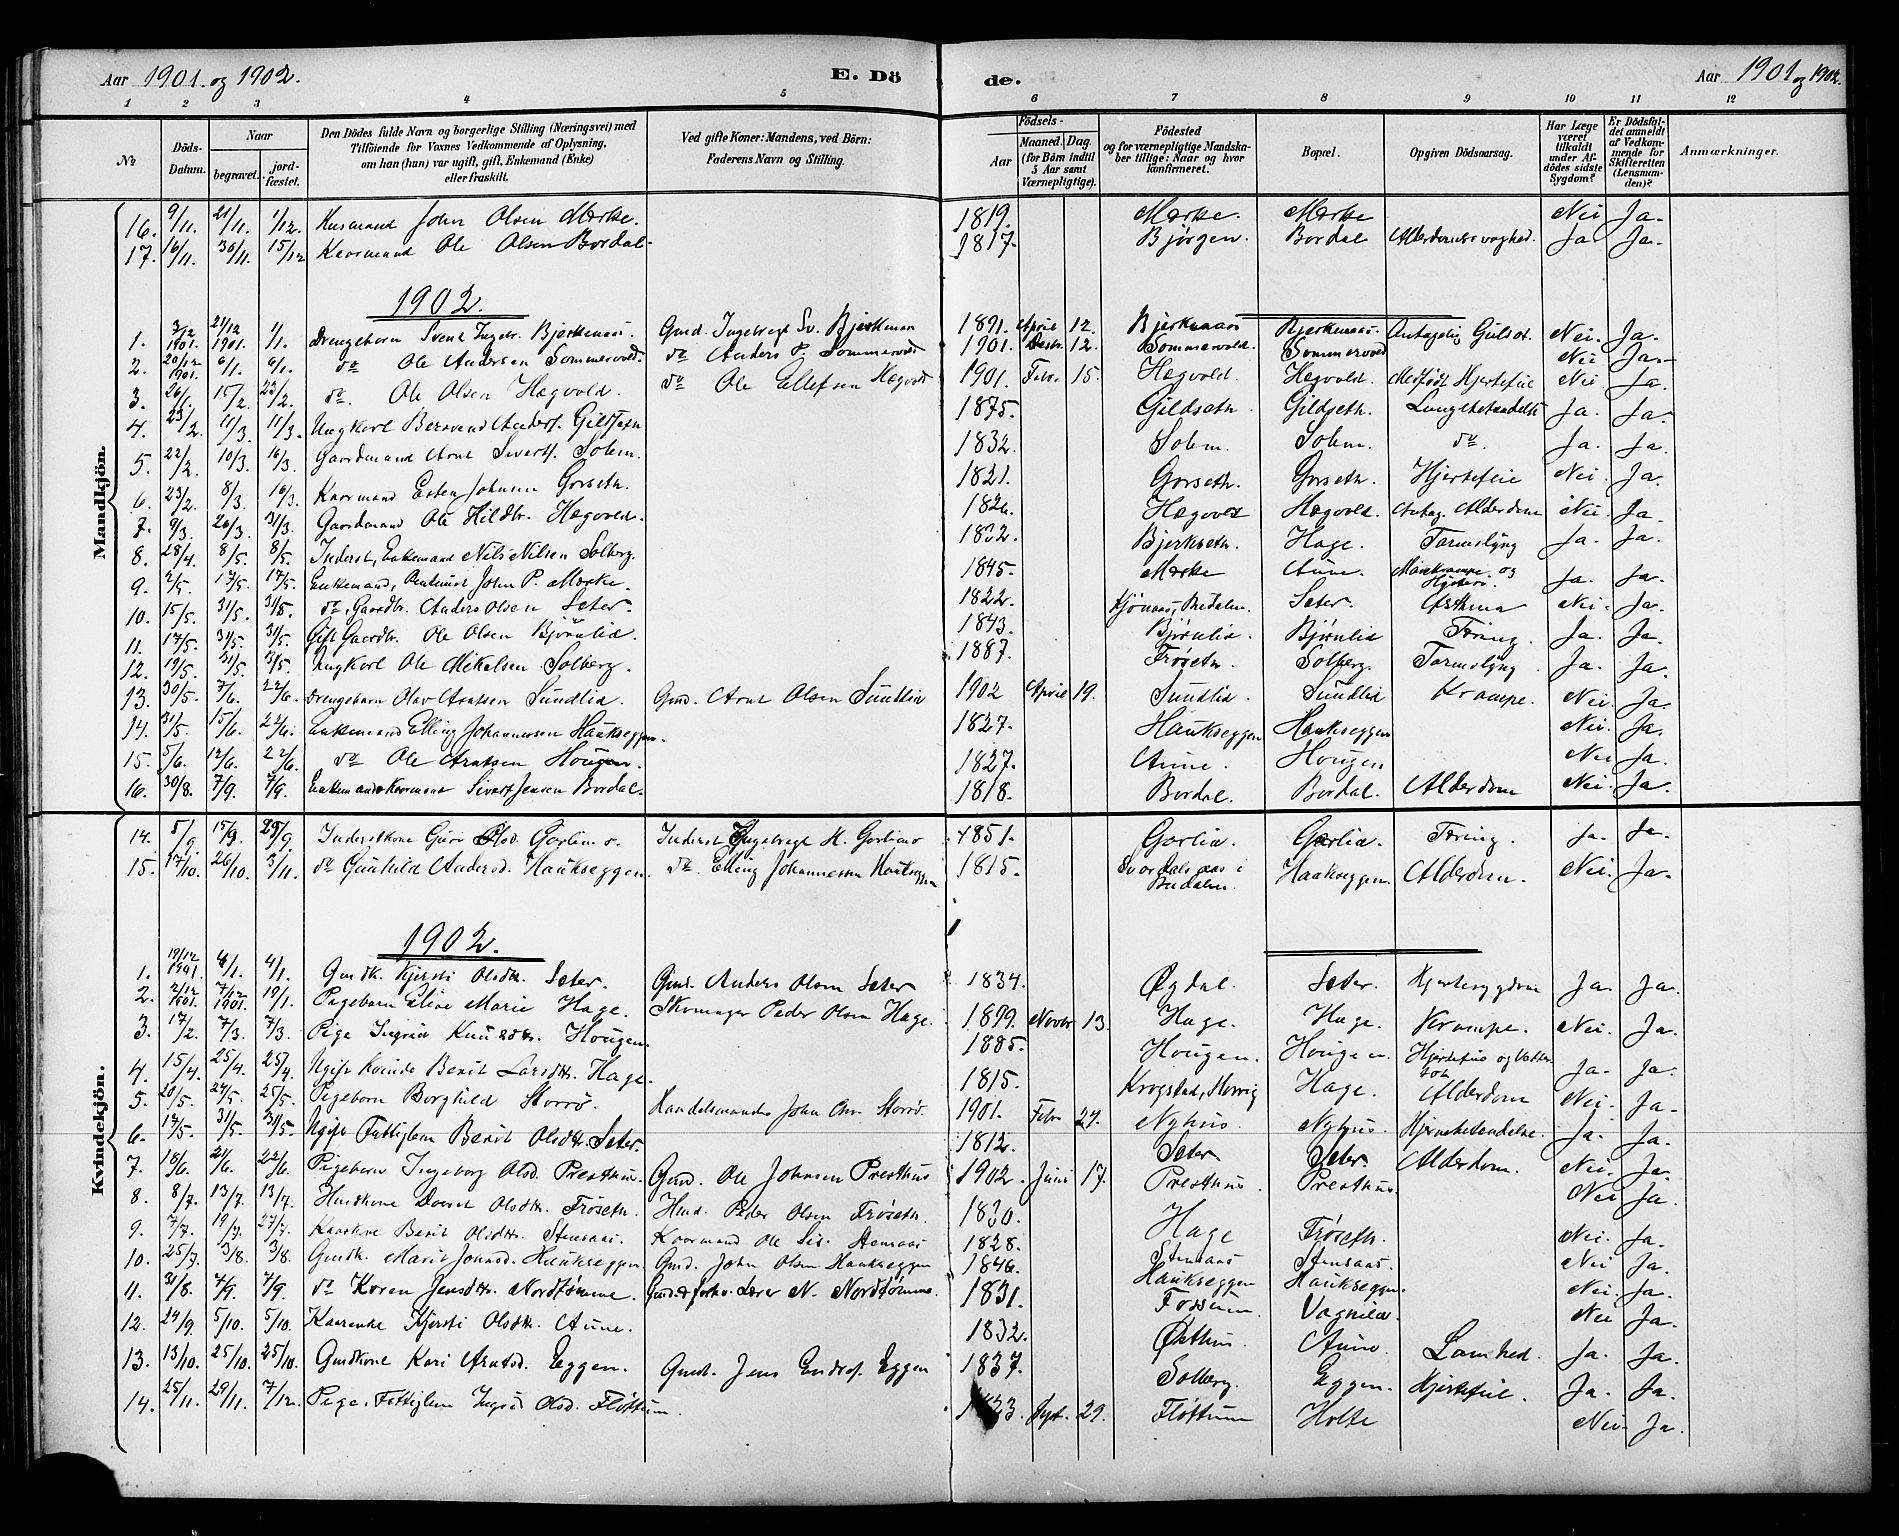 Aar 1901. og 1902. E. Dö de. Aar 1901 og 1902.
1 2 3 4 5 6 7 8 9 10 11 12
№ Döds-Datum. Naar begravet. jord-fæstet. Den Dödes fulde Navn og borgerlige Stilling (Næringsvei) med Tilföiende for Voxnes Vedkommende af Oplysning, om han (hun) var ugift, gift, Enkemand (Enke) eller fraskilt. Ved gifte Koner: Mandens, ved Börn: Faderens Navn og Stilling. Födsels- Aar Maaned. Dag. (for Börn indtil 5 Aar samt Værnepligtige). Födested og for værnepligtige Mandskaber tillige: Naar og hvor konfirmeret. Bopæl. Opgiven Dödsaarsag. Har Læge været tilkaldt under Afdödes sidste Sygdom? Er Dödsfaldet anmeldt af Vedkommende for Skifteretten (Lensmanden)? Anmærkninger.
Mandkjön.
16. 9/11. 21/11. 1/12. Husmand John Olsen Mærke. 1819. Mærke. Mærke Nei Ja.
17. 16/11. 30/11. 15/12 Kaarmand Ole Olsen Bordal. 1817. Bjørgen. Bordal Alderdomssvaghed. Ja Ja.
1902.
1. 3/12 1901. 21/12 1901. 1/1. Drengebarn Svent Ingebr. Bjerkenaas. Gmd. Ingebregt Sv. Bjerkenaas 1891. April 12. Bjerkenaas Bjerkenaas. Antagelig Gulsot. Nei. Ja.
2. 20/12 1901. 6/1. 6/1. do Ole Andersen Sommervold. do Anders P. Sommervold 1901. 12. Sommervold. Sommervold Nei Ja.
3. 26/1. 15/2. 23/2. do. Ole Olsen Hægvold. do Ole Ellefsen Hægvold 1901. Febr. 15. Hægvold. Hægvold. Medfødt Hjertefeil Nei Ja.
4. 23/2. 11/3. 11/3. Ungkarl Bersvend Anders. Gildseth 1875. Gildseth. Gildseth. Lungebetændelse Ja. Ja.
5. 22/2. 10/3. 16/3. Gaardmand Arnt Siverts. Solem. 1832. Solem. Solem. do. Ja. Ja.
6. 23/2 8/3. 16/3. Kaarmand Esten Johnsen Gorseth. 1821. Gorseth. Gorseth. Hjertefeil Nei. Ja.
7. 9/3. 26/3. 31/3. Gaardmand Ole Hildbr. Hægvold. 1826. Hægvold Hægvold. Antag. Alderdom Nei. Ja.
8. 28/4. 8/5. 8/5. Inderst, Enkemand Nils Nilsen Solberg. 1832. Bjerkseth. Hage. Tarmslyng Ja. Ja.
9. 2/5. 17/5. 17/5. Enkemand, John P. Mærke. 1845. Mærke Aune. Mavekrampe og Ja. Ja.
10. 15/5. 31/5. 31/5. do, Gaardbr. Anders Olsen Seter. 1822. Budalen. Seter. Asthma Nei. Ja.
11. 17/5. 31/5. 31/5. Gift Gaardbr. Ole Olsen Bjørnlid. 1843. Bjørnlid. Bjørnlid Tæring. Ja. Ja.
12. 19/5. 31/5. 31/5. Ungkarl Ole Mikalsen Solberg. 1887. Frøseth. Solberg. Tarmslyng Ja. Ja.
13. 30/5. 7/6. 22/6. Drengebarn Olav Arntsen Sundlid Gmd. Arnt Olsen Sundlid 1902 April 19. Sundlid. Sundlid Krampe. Nei. Ja.
14. 31/5. 15/6. 22/6. Enkemand Elling Johannesen Haukseggen. 1827. Haukseggen Haukseggen Nei. Ja.
15. 5/6. 12/6. 22/6. do Ole Arntsen Hougen. 1827. Aune. Hougen Nei Ja.
16. 30/8. 7/9. 7/9. Enkemand Kaarmand Sivert Jensen Bordal. 1818. Bordal. Bordal. Alderdom Nei. Ja.
Kvindekjön.
14. 5/9. 15/9. 29/9. Inderstkone Guri Olsd. Gorlimo. Inderst Ingebregt H. Gorlimo 1851. Gorlid. Gorlid. Tæring. Ja. Ja.
15. 17/10. 26/10. 3/11. do Gunhild Andersd. Haukseggen. do. Elling Johannessen Haukseggen 1815. Svardalsaas i Budalen. Haukseggen Alderdom. Nei. Ja.
1902.
1. 19/12 1901. 4/1. 4/1. Gmdk. Kjersti Olsdtr. Seter. Gmd. Anders Olsen Seter 1834. Øgdal. Seter. Hjertesygdom Ja. Ja.
2. 2/12 1901. 7/12 1901. 19/1. Pigebarn Eline Marie Hage. Skomager Peder Olsen Hage. 1899. Novbr 13. Hage. Hage. Krampe. Nei. Ja.
3. 17/2. 7/3. 7/3. Pige Ingrid Knudsdtr. Hougen. 1885. Hougen. Hougen. Hjertefeil og Vattersot Ja. Ja.
4. 15/4. 25/4. 25/4. Ugift Kvinde Berit Larsdtr. Hage. 1815. Krogstad, Horrig Hage. Alderdom Nei. Ja.
5. 20/5. 24/5. 25/5. Pigebarn Borghild Storrø. Handelsmand John Storrø. 1901. Febr 27. Nyhus. Nyhus. Hjernebetændelse. Ja. Ja.
6. 17/5. 31/5. 31/5. Ugift Fattiglem Berit Olsdtr. Seter. 1812. Seter. Seter. Alderdom. Nei. Ja.
7. 18/6. 21/6. 22/6. Pigebarn Ingeborg Olsd. Presthus. Gmd. Ole Johnsen Presthus 1902. Juni 17. Presthus. Presthus. Nei Ja.
8. 8/7. 13/7. 13/7. Husdkone Doret Olsdtr. Frøseth. Hmd. Peder Olsen Frøseth. 1830. Hage Frøseth. Nei. Ja.
9. 7/7. 19/7. 27/7. Kaarkone Berit Olsdtr. Stensaas. Kaarmand Ole Stensaas 1828. Stensaas Stensaas. Nei Ja.
10. 25/7. 3/8. 3/8. Gmdk. Marit Johnsd. Haukseggen Gmd. John Olsen Haukseggen 1846. Haukseggen Haukseggen. Nei. Ja.
11. 31/8. 7/9. 7/9. do Karen Jensdtr. Nordtømme. Gmd. & forhv. Lærer N. Nordtømme. 1831. Fossum. Vagnild. Nei Ja.
12. 24/9. 5/10. 5/10. Kaarenke Kjersti Olsdtr. Aune. 1832. Østhus. Aune Lamhed. Ja. Ja.
13. 13/10. 25/10. 25/10. Gmdkone Kari Arntsd. Eggen. Gmd. Jens Endres. Eggen 1837. Solberg. Eggen. Hjertefeil. Ja. Ja.
14. 25/11. 29/11. 7/12. Pige, Fattiglem Ingrid Olsd. Fløttum. 23. Sept. 29. Fløttum Holte Nei. Ja.